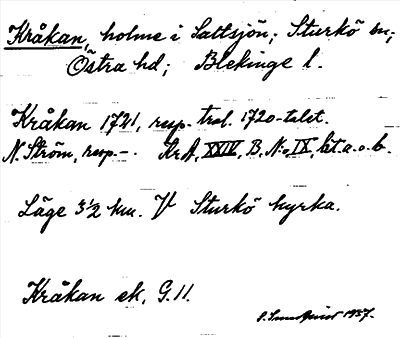 Kråkan, holme i Saltsjön; Sturkö sn;
Östra hd; Blekinge l.
Kråkan 1721, resp. trol. 1720-talet.
N. Ström, resp.-. Kr A, XXIV, B, No IX, lit. a. o. b.
Läge 3½ km. V Sturkö kyrka.
Kråkan ek, G. 11.
1937.